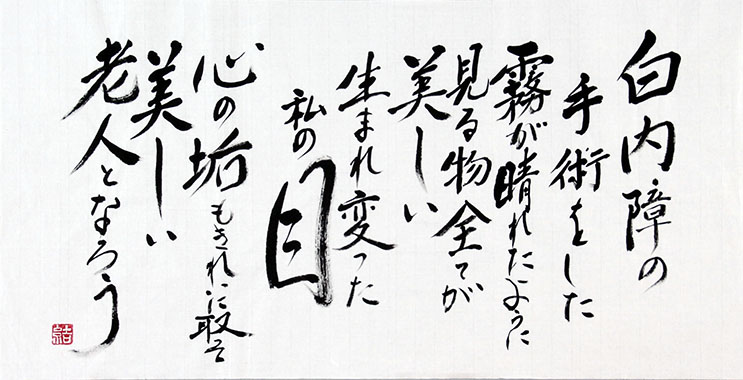 白内障の
手術をした
霧が晴れたように
見る物全てが
美しい
生まれ変った
私の
目
心の垢もきれいに取って
美しい
老人となろう